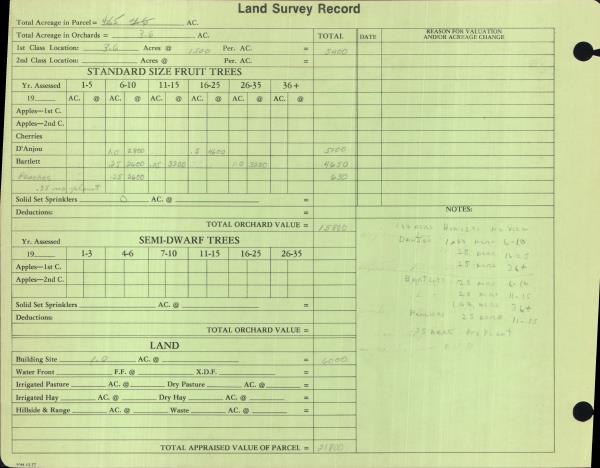 Land Survey Record
Total Acreage in Parcel= 4.65 AC.
Total Acreage in Orchards = 3.6 AC. TOTAL DATE REASON FOR VALUATION AND/OR ACREAGE CHANGE
1st Class Location: 3.6 Acres @ 1500 Per. AC. = 5400
2nd Class Location: Acres @ Per. AC. =
STANDARD SIZE FRUIT TREES
Yr. Assessed 1-5 6-10 11-15 16-25 26-35 36+
19 AC. @ AC. @ AC. @ AC. @ AC. @ AC. @
Apples—1st C.
Apples—2nd C.
Cherries
D'Anjou 1.0 2800 .5 4600 5200
Bartlett .25 2600 .25 3200 1.0 3200 4650
Peaches .25 2600 650
.35 no plant
Solid Set Sprinklers 0 AC. @ =
Deductions: NOTES:
TOTAL ORCHARD VALUE = 15800
SEMI-DWARF TREES
Yr. Assessed
19 1-3 4-6 7-10 11-15 16-25 26-35
Apples—1st C.
Apples—2nd C.
Solid Set Sprinklers AC. @ =
Deductions:
TOTAL ORCHARD VALUE =
LAND
Building Site 1.0 AC. @ = 6000
Water Front F.F. @ X.D.F. =
Irrigated Pasture AC. @ Dry Pasture AC. @ =
Irrigated Hay AC. @ Dry Hay AC. @ =
Hillside & Range AC. @ Waste AC. @ =
TOTAL APPRAISED VALUE OF PARCEL = 21800
1.00 acre Homesite no view
acre 6-10
.25 acre 16-25
.25 acre 36+
Bartlett .25 acre 6-10
.25 acre 11-15
acre 36+
.25 acre 11-15
.35 acre no plant